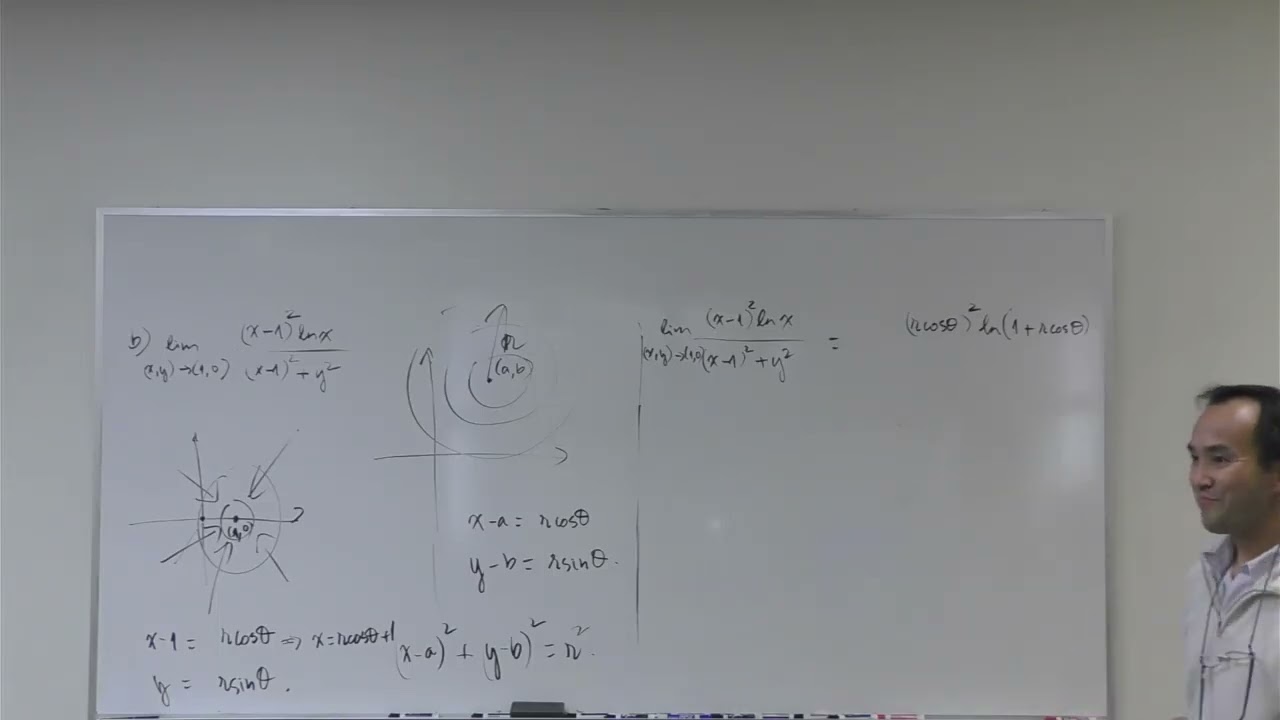 b) lim (x,y)→(1,0) (x-1)² ln x / (x-1)² + y²
r
(a,b)
(1,0)
x-a = rcosθ
y-b = rsinθ.
x-1 = rcosθ ⇒ x = rcosθ+1
y = rsinθ.
(x-a)² + (y-b)² = r².
lim (x,y)→(1,0) (x-1)² ln x / (x-1)² + y² = (rcosθ)² ln(1+rcosθ)